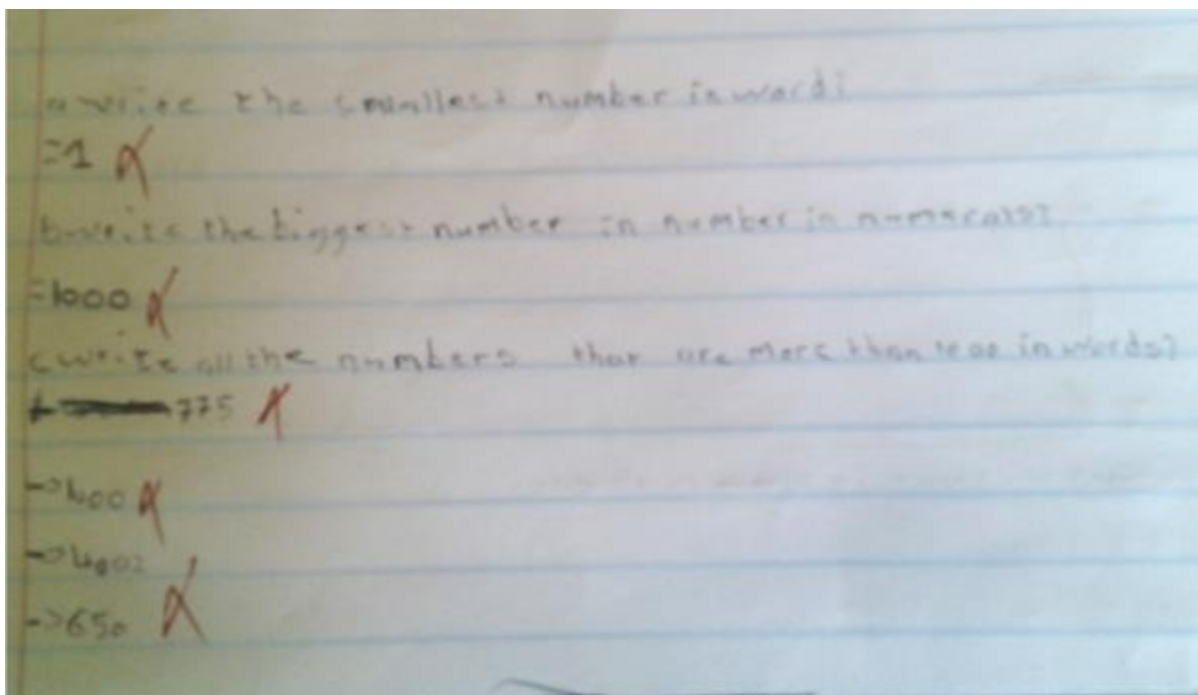 a write the smallest number in word?
=1
b write the biggest number in number in numerals?
=1000
c write all the numbers that are more than 1000 in words?
775
->1000
->4002
->650